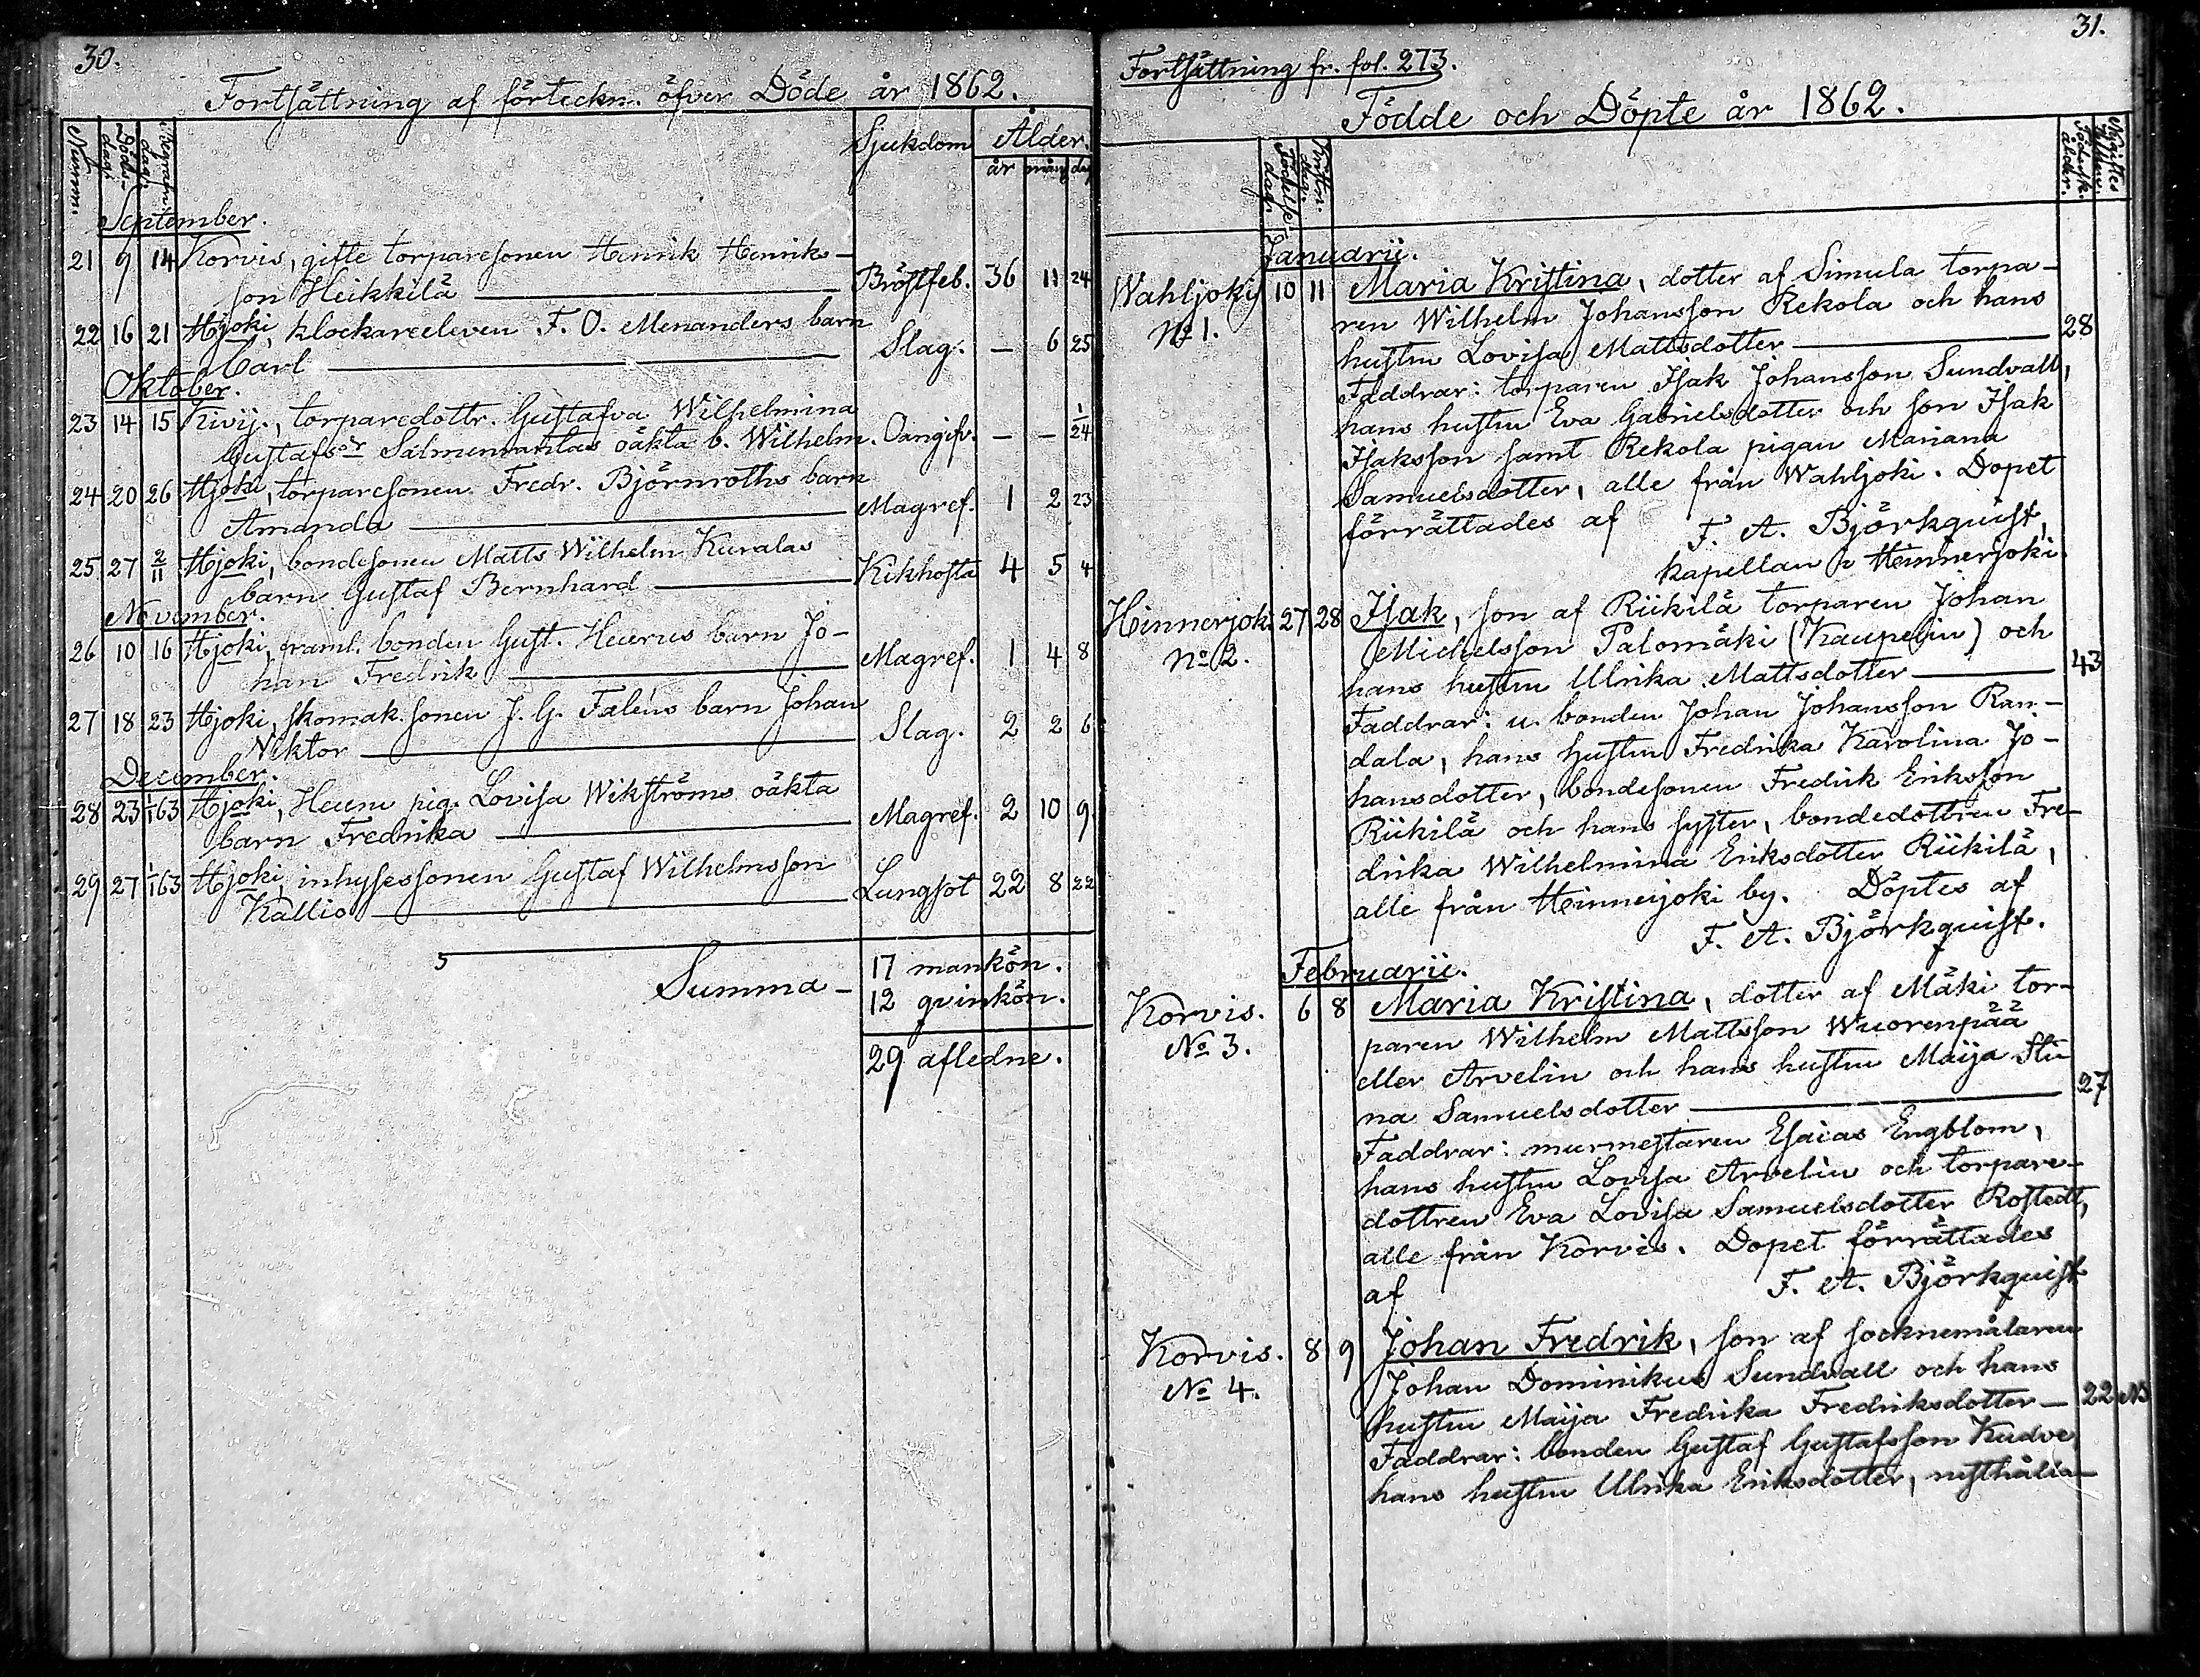 30.
Fortsättning af förteckn. öfver Döde år 1862.
Numm. Döds-dag. Begrafn.dag. Sjukdom Ålder.
år mån dag
September.
21 9 14 Korvis, gifte torparesonen Henrik Henriks-
son Heikkilä — Bröstfeb. 36 11 24
22 16 21 Hjoki, klockareeleven F. O. Menanders barn
Carl — Slag. — 6 25
Oktober.
23 14 15 Kivij., torparedottr. Gustafva Wilhelmina
Gustafsdr Salmenrantas oäkta b. Wilhelm. Oangifv. — — 1/24
24 20 26 Hjoki, torparesonen Fredr. Björnroths barn
Amanda — Magref. 1 2 23
25 27 2/11 Hjoki, bondesonen Matts Wilhelm Kuralas
barn Gustaf Bernhard — Kikhosta 4 5 4
November.
26 10 16 Hjoki, framl. bonden Gust. Heurus barn Jo-
han Fredrik — Magref. 1 4 8
27 18 23 Hjoki, skomak.sonen J. G. Falens barn Johan
Viktor — Slag. 2 2 6
December.
28 23 1/1 63 Hjoki, Heuru pig. Lovisa Wikströms oäkta
barn Fredrika — Magref. 2 10 9
29 27 1/1 63 Hjoki, inhysessonen Gustaf Wilhelmsson
Kallio — Lungsot 22 8 22
5
Summa – 17 mankön.
12 qvinkön.
29 afledne.
31.
Fortsättning fr. fol. 273.
Födde och Döpte år 1862.
Födelse-dag. Kristn.dag. Födersk. ålder.
Januarii.
Wahljoky 10 11 Maria Kristina, dotter af Simula torpa-
No 1. ren Wilhelm Johansson Rekola och hans
hustru Lovisa Mattsdotter — 28
Faddrar: torparen Isak Johansson Sundvall,
hans hustru Eva Gabrielsdotter och son Isak
Isaksson samt Rekola pigan Mariana
Samuelsdotter, alle från Wahljoki. Dopet
förrättades af F. A. Björkquist,
kapellan i Hinnerjoki.
Hinnerjoki 27 28 Isak, son af Riikilä torparen Johan
No 2. Michelsson Palomäki (Kaupelin) och
hans hustru Ulrika Mattsdotter — 43
Faddrar: u. bonden Johan Johansson Ran-
dala, hans hustru Fredrika Karolina Jo-
hansdotter, bondesonen Fredrik Eriksson
Riikilä och hans syster, bondedottren Fre-
drika Wilhelmina Eriksdotter Riikilä,
alle från Hinnerjoki by. Döptes af
F. A. Björkquist.
Februarii.
Korvis. 6 8 Maria Kristina, dotter af Mäki tor-
No 3. paren Wilhelm Mattsson Wuorenpää
eller Arvelin och hans hustru Maija Sti-
na Samuelsdotter — 27
Faddrar: murmestaren Esaias Engblom,
hans hustru Lovisa Arvelin och torpare-
dottren Eva Lovisa Samuelsdotter Rostedt,
alle från Korvis. Dopet förrättades
af F. A. Björkquist
Korvis. 8 9 Johan Fredrik, son af socknemålaren
No 4. Johan Dominikus Sundvall och hans
hustru Maija Fredrika Fredriksdotter — 22 NB
Faddrar: bonden Gustaf Gustafsson Kudve,
hans hustru Ulrika Eriksdotter, rusthålla-